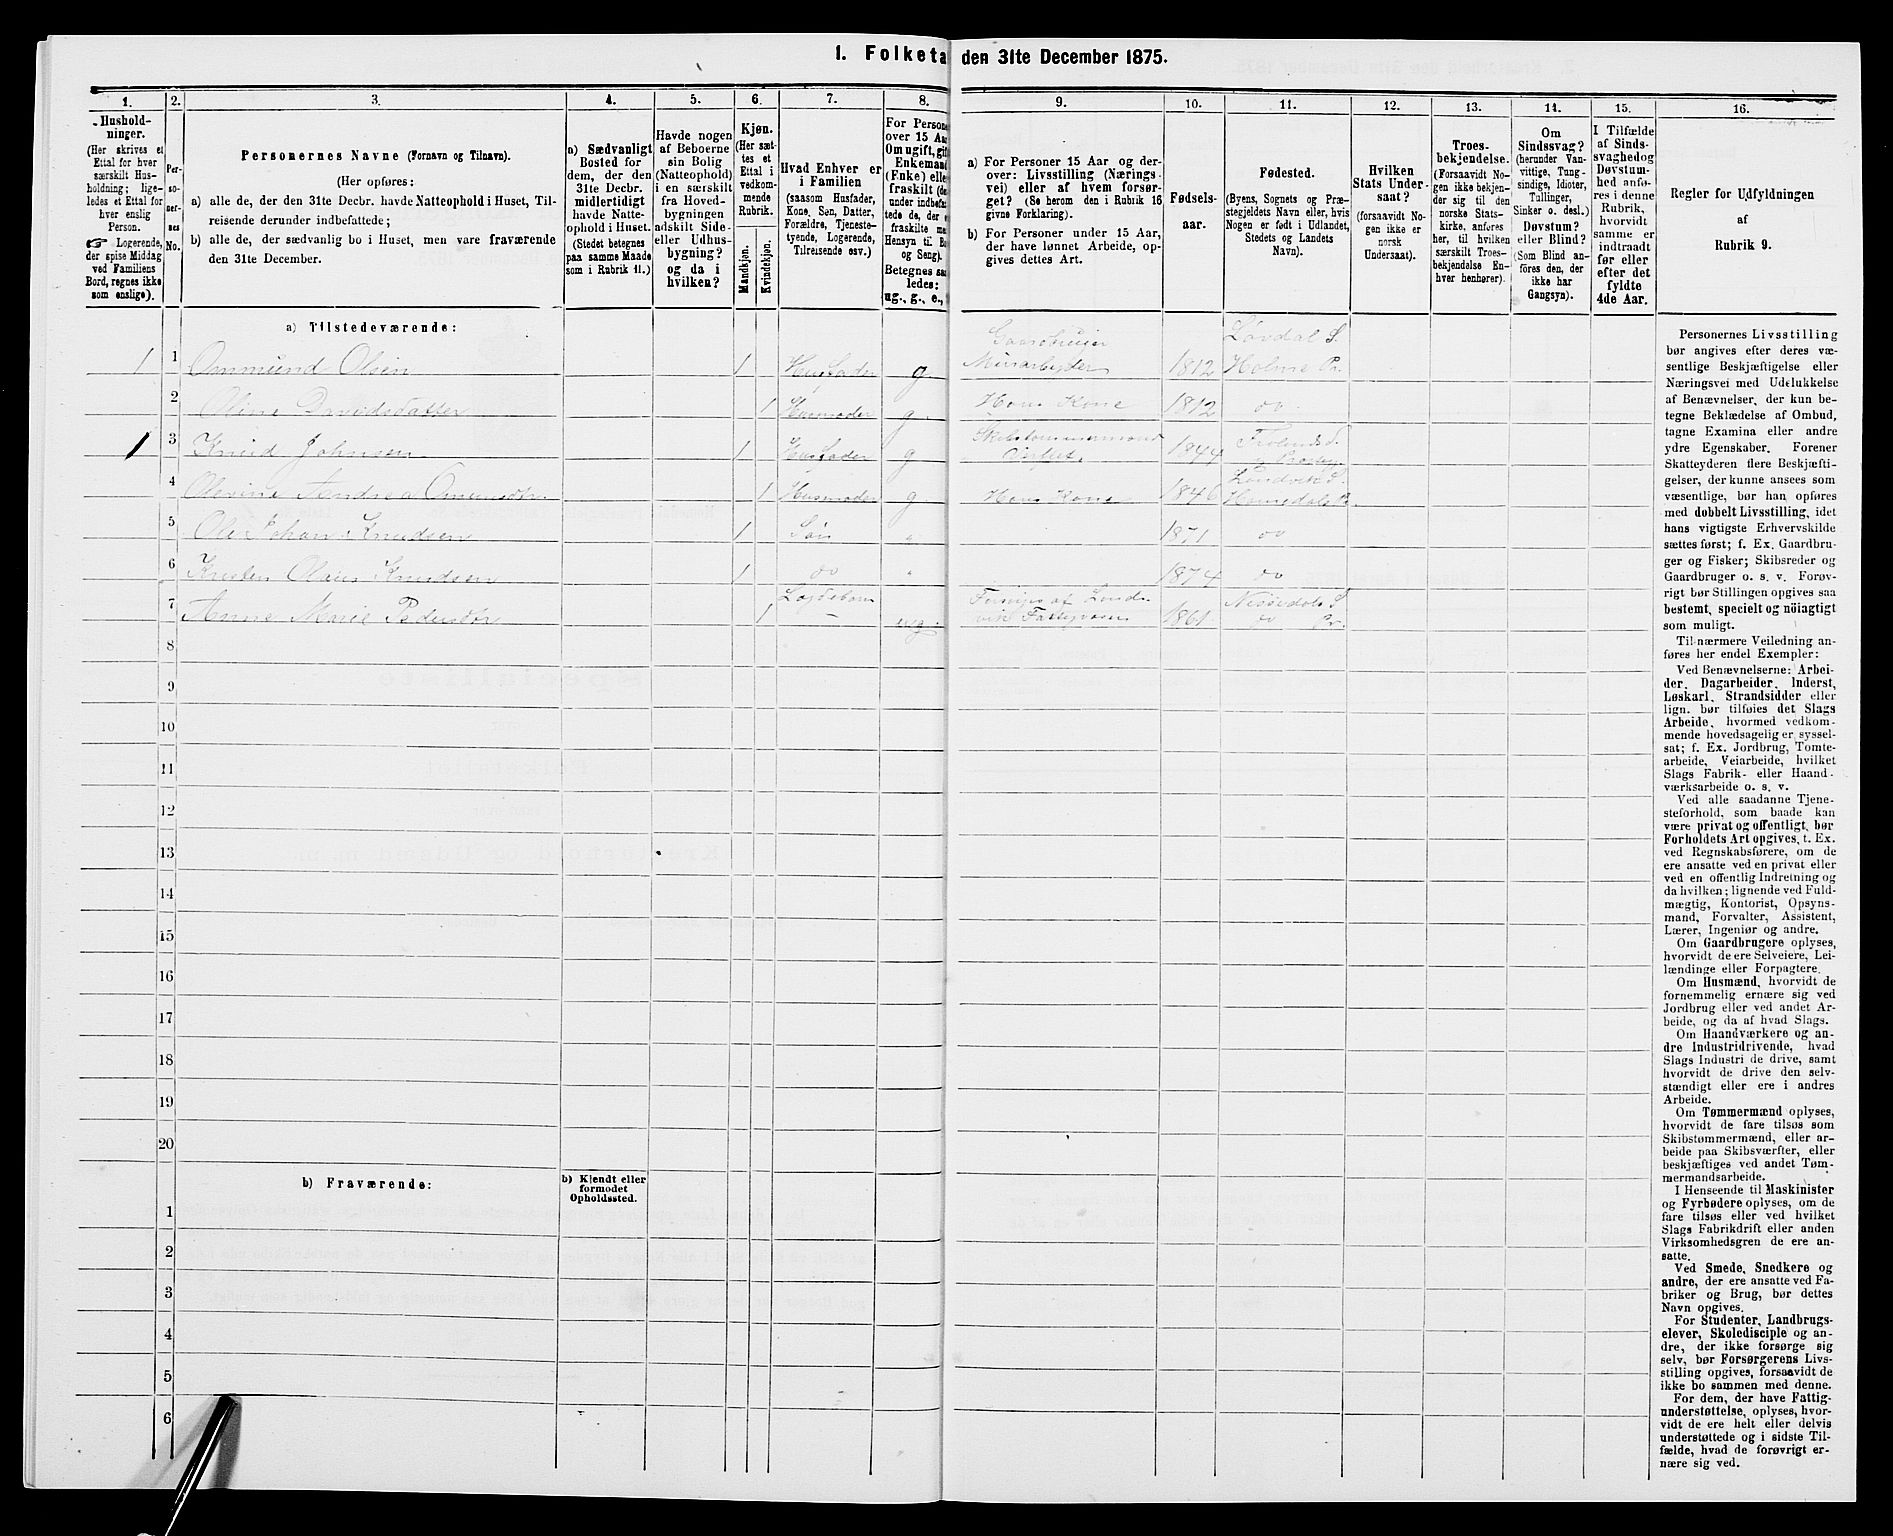 1. Folketa den 31te December 1875.
1. 2. 3. 4. 5. 6. 7. 8. 9. 10. 11. 12. 13. 14. 15. 16.
Hushold-
ninger.
(Her skrives et
Ettal for hver
særskilt Hus-
holdning; lige-
ledes et Ettal for
hver enslig
Person.
☞ Logerende,
der spise Middag
ved Familiens
Bord, regnes ikke
som enslige).
Per-
so-
ner-
nes
No.
Personernes Navne (Fornavn og Tilnavn).
(Her opføres:
a) alle de, der den 31te Decbr. havde Natteophold i Huset, Til-
reisende derunder indbefattede;
b) alle de, der sædvanlig bo i Huset, men vare fraværende
den 31te December.
a) Sædvanligt
Bosted for
dem, der den
31te Decbr.
midlertidigt
havde Natte-
ophold i Huset.
(Stedet betegnes
paa samme Maade
som i Rubrik 11.)
Havde nogen
af Beboerne
sin Bolig
(Natteophold)
i en særskilt
fra Hoved-
bygningen
adskilt Side-
eller Udhus-
bygning?
og da i
hvilken?
Kjøn.
(Her sæt-
tes et
Ettal i
vedkom-
mende
Rubrik.
Mandkjøn.
Kvindekjøn.
Hvad Enhver er
i Familien
(saasom Husfader,
Kone, Søn, Datter,
Forældre, Tjeneste-
tyende, Logerende,
Tilreisende osv.)
For Persone
over 15 Aar
Om ugift, gift
Enkemand
(Enke) elle
fraskilt (de
under indbefat
tede de, der e
fraskilte me
Hensyn til Bo
og Seng).
Betegnes saa
ledes:
ug., g., e.,
a) For Personer 15 Aar og der-
over: Livsstilling (Nærings-
vei) eller af hvem forsør-
get? (Se herom den i Rubrik 16
givne Forklaring).
b) For Personer under 15 Aar,
der have lønnet Arbeide, op-
gives dettes Art.
Fødsels-
aar.
Fødested.
(Byens, Sognets og Præ-
stegjeldets Navn eller, hvis
Nogen er født i Udlandet,
Stedets og Landets
Navn).
Hvilken
Stats Under-
saat?
(forsaavidt No-
gen ikke er
norsk
Undersaat).
Troes-
bekjendelse.
(Forsaavidt No-
gen ikke bekjen-
der sig til den
norske Stats-
kirke, anføres
her, til hvilken
særskilt Troes-
bekjendelse En-
hver henhører).
Om
Sindssvag?
(herunder Van-
vittige, Tung-
sindige, Idioter,
Tullinger,
Sinker o. desl.)
Døvstum?
eller Blind?
(Som Blind an-
føres den, der
ikke har
Gangsyn).
I Tilfælde
af Sinds-
svaghed og
Døvstum-
hed anfø-
res i denne
Rubrik,
hvorvidt
samme er
indtraadt
før eller
efter det
fyldte
4de Aar.
Regler for Udfyldningen
af
Rubrik 9.
a) Tilstedeværende:
1 1 Ommund Olsen 1 Husfader g Gaardbruger Murarbeider 1812 Løvdal S. Holme Pr.
2 Oline Davidsdatter 1 Husmoder g. Hans Kone 1812 do
1 3 Knud Johnsen 1 Husfader g Skibstømmermand 1844 Frolands S.
4 Olevine Andrea Omundsdtr 1 Husmoder g Hans Kone 1846 Landvik S. Homedals Pr
5 Ole Johan Knudsen 1 Søn 1871 do
6 Kristen Olaus Knudsen 1 do " 1874 do
7 Anne Marie Pedersdtr 1 Lægdebarn ug. Forsørges af Land- vik Fattigvæsen 1861 Nissedals S. do Pr.
8
9
10
11
12
13
14
15
16
17
18
19
20
b) Fraværende:
b) Kjendt eller
formodet
Opholdssted.
1
2
3
4
5
6
Personernes Livsstilling
bør angives efter deres væ-
sentlige Beskjæftigelse eller
Næringsvei med Udelukkelse
af Benævnelser, der kun be-
tegne Beklædelse af Ombud,
tagne Examina eller andre
ydre Egenskaber. Forener
Skatteyderen flere Beskjæfti-
gelser, der kunne ansees som
væsentlige, bør han opføres
med dobbelt Livsstilling, idet
hans vigtigste Erhvervskilde
sættes først; f. Ex. Gaardbru-
ger og Fisker; Skibsreder og
Gaardbruger o. s. v. Forøv-
rigt bør Stillingen opgives saa
bestemt, specielt og nøiagtigt
som muligt.
Til nærmere Veiledning an-
føres her endel Exempler:
Ved Benævnelserne: Arbei-
der, Dagarbeider, Inderst,
Løskarl, Strandsidder eller
lign. bør tilføies det Slags
Arbeide, hvormed vedkom-
mende hovedsagelig er syssel-
sat; f. Ex. Jordbrug, Tomte-
arbeide, Veiarbeide, hvilket
Slags Fabrik- eller Haand-
værksarbeide o. s. v.
Ved alle saadanne Tjene-
steforhold, som baade kan
være privat og offentligt, bør
Forholdets Art opgives, t. Ex.
ved Regnskabsførere, om de
ere ansatte ved en privat eller
ved en offentlig Indretning og
da hvilken; lignende ved Fuld-
mægtig, Kontorist, Opsyns-
mand, Forvalter, Assistent,
Lærer, Ingeniør og andre.
Om Gaardbrugere oplyses,
hvorvidt de ere Selveiere, Lei-
lændinge eller Forpagtere.
Om Husmænd, hvorvidt de
fornemmelig ernære sig ved
Jordbrug eller ved andet Ar-
beide, og da af hvad Slags.
Om Haandværkere og an-
dre Industridrivende, hvad
Slags Industri de drive, samt
hvorvidt de drive den selv-
stændigt eller ere i andres
Arbeide.
Om Tømmermænd oplyses,
hvorvidt de fare tilsøs som
Skibstømmermænd, eller ar-
beide paa Skibsværfter, eller
beskjæftiges ved andet Tøm-
mermandsarbeide.
I Henseende til Maskinister
og Fyrbødere oplyses, om de
fare tilsøs eller ved hvilket
Slags Fabrikdrift eller anden
Virksomhedsgren de ere an-
satte.
Ved Smede, Snedkere og
andre, der ere ansatte ved Fa-
briker og Brug, bør dettes
Navn opgives.
For Studenter, Landbrugs-
elever, Skoledisciple og an-
dre, der ikke forsørge sig
selv, bør Forsørgerens Livs-
stilling opgives, forsaavidt de
ikke bo sammen med denne.
For dem, der have Fattig-
understøttelse, oplyses, hvor-
vidt de ere helt eller delvis
understøttede og i sidste Til-
fælde, hvad de forøvrigt er-
nære sig ved.